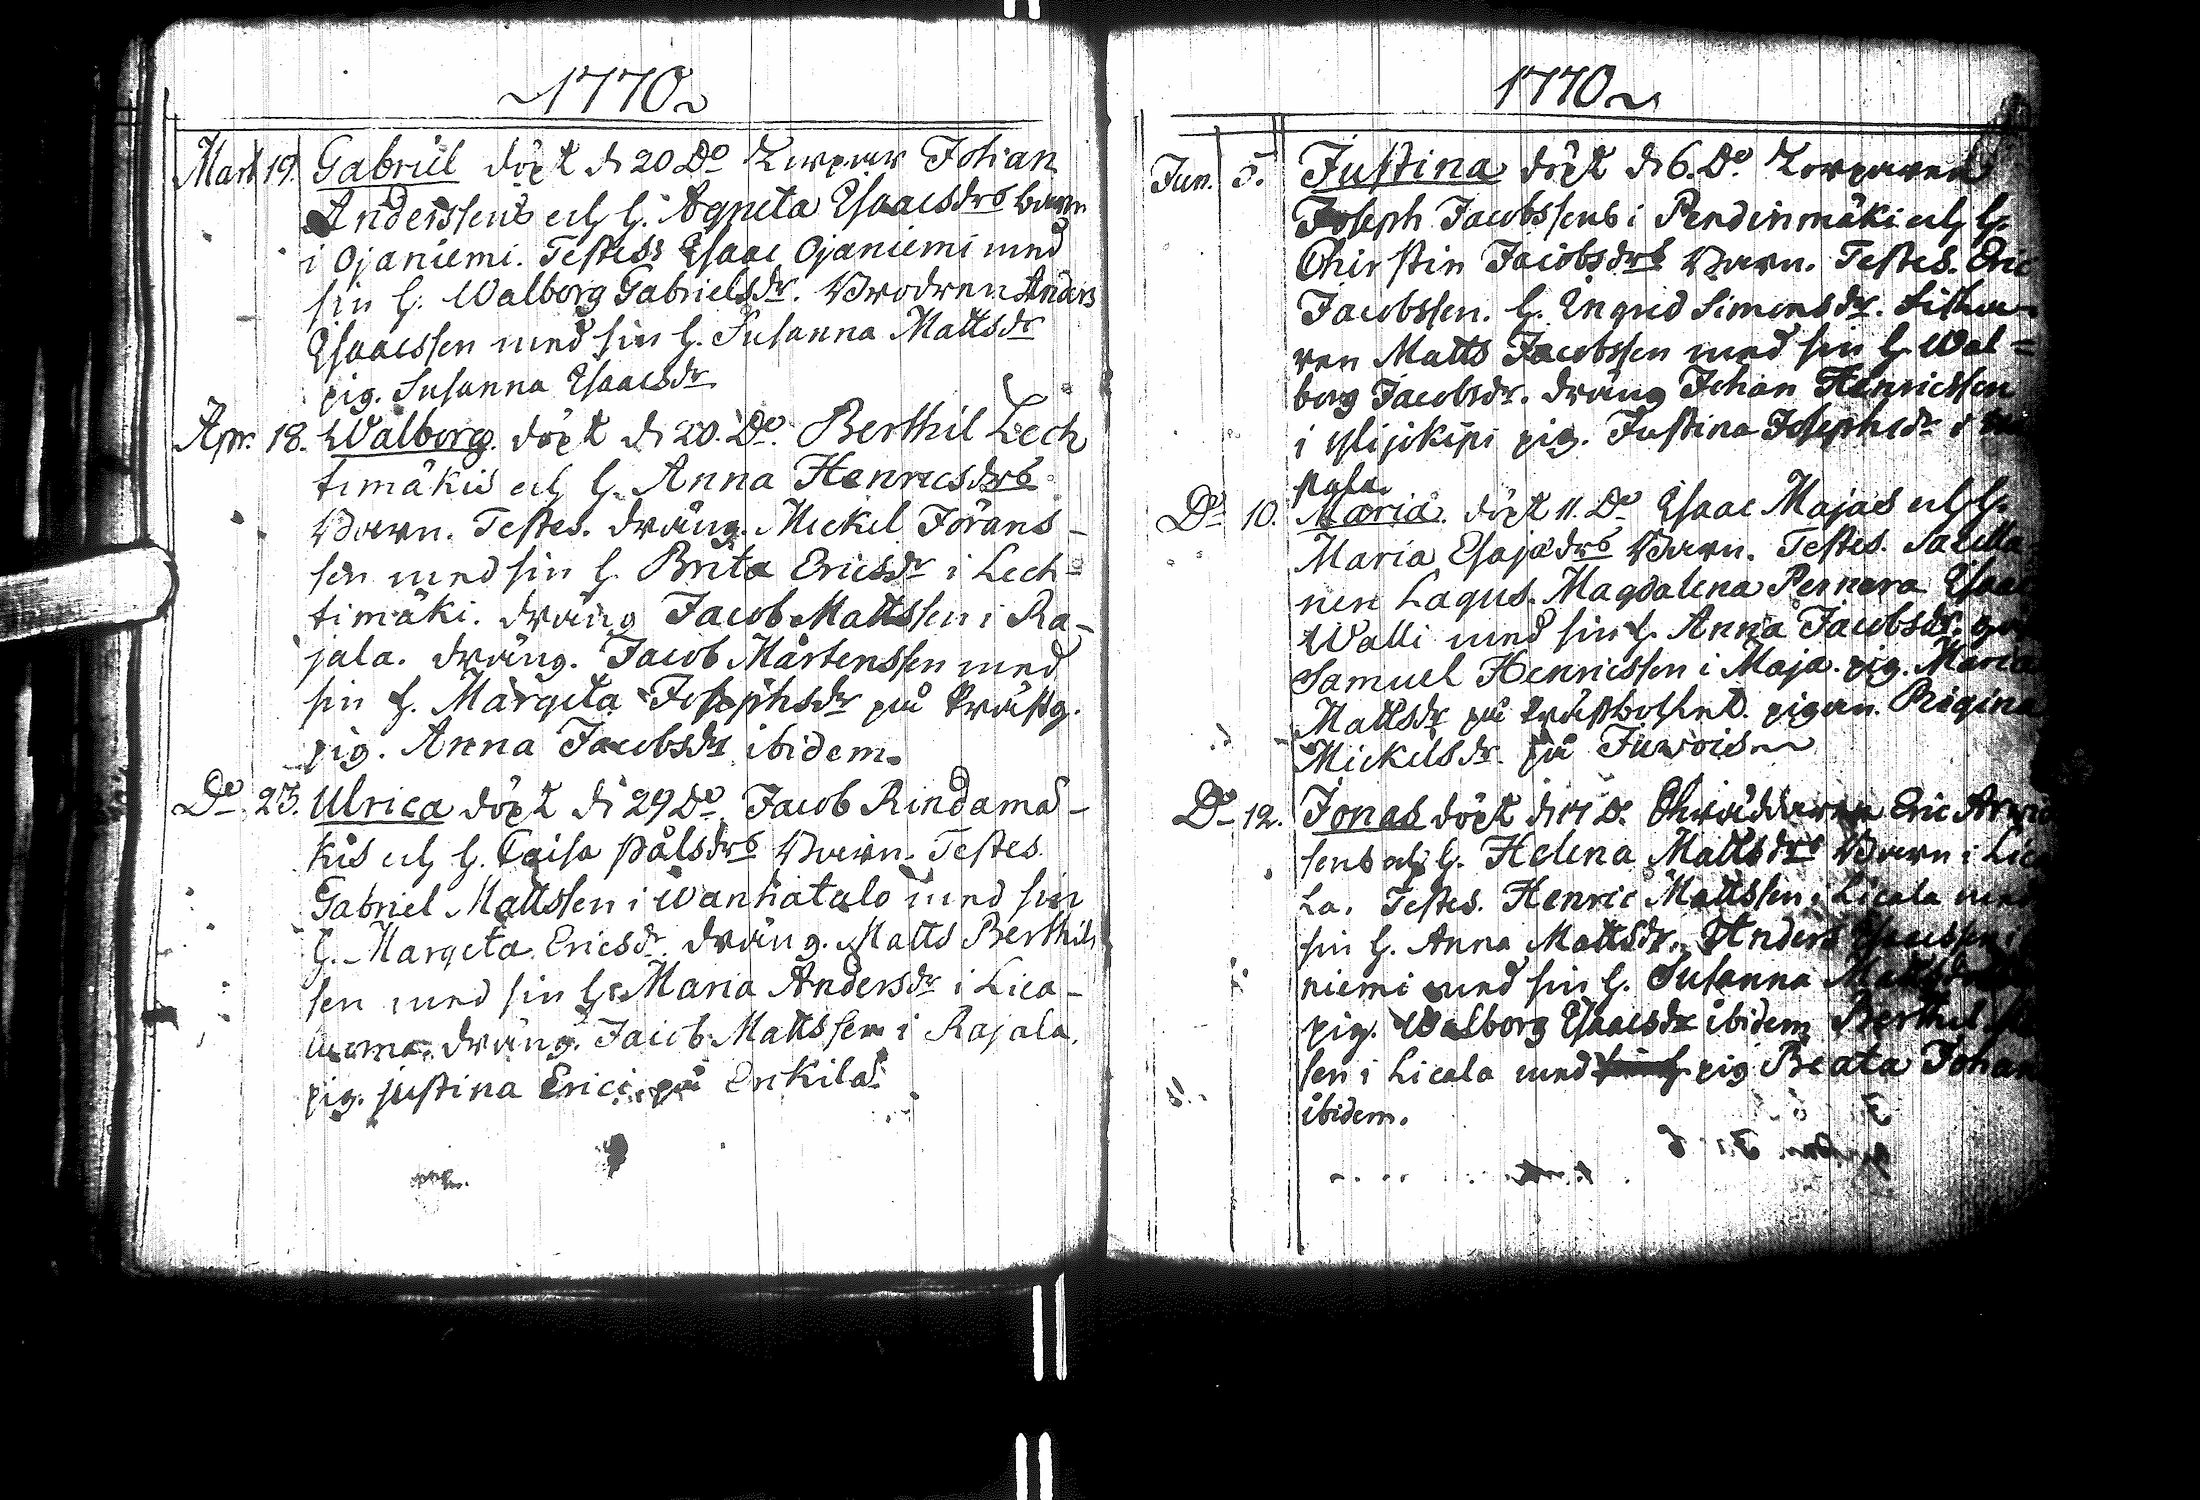 1770
Mart. 19. Gabriel döpt d. 20 Do Torpar Johan
Anderssens och h. Agneta Esaacsdrs barn
i Ojaniemi. Testes Esaac Ojaniemi med
sin h. Walborg Gabrielsdr. Brodren Anders
Esaacssen med sin h. Susanna Mattsdr
pig. Susanna Esaacsdr.
Apr. 18. Walborg döpt d. 20. Do. Berthil Lech
timäkis och h. Anna Henricsdrs
Barn. Testes. dräng. Mickel Jörans-
sen med sin h. Brita Ericsdr i Lech=
timäki. dräng Jacob Mattssen i Ra-
jala. dräng. Jacob Mårtenssen med
sin h. Margeta Josephsdr på Prästg.
pig. Anna Jacobsdr ibidem.
Do 23. Ulrica döpt d. 29 Do. Jacob Rindamä-
kis och h. Caisa Pålsdrs Barn. Testes
Gabriel Mattssen i Wanhatalo med sin
h. Margeta Ericsdr. dräng. Matts Berthils
sen med sin h. Maria Andersdr i Lica-
dräng. Jacob Mattssen i Rajala.
pig. justina Erici på Erikilä.
1770
Jun. 5. Justina döpt d. 6. Do. Torparen
Joseph Jacobssens i Pendinmäki och h.
Chirstin Jacobsdrs Barn. Testes. Eric
Jacobssen. h. Ingrid Simonsdr.
ren Matts Jacobssen med sin h. Wal=
borg Jacobsdr. dräng Johan Henricssen
i ylijokipi pig. Justina Josephsdr i
pala.
Do 10. Maria. döpt 11. Do Esaac Majas och h.
Maria Esajædrs Barn. Testes. Sacella
nen Lagus. Magdalena Pernera Esaac
Walli med sin h. Anna Jacobsdr.
Samuel Henricssen i Maja. pig. Maria
Mattsdr på Präst pigan. Rigina
Mickelsdr. på
Do 12. Jonas döpt d. Do. Skräddaren Eric
sens och h. Helena Mattsdrs Barn i Lica
La. Testes. Henric Mattssen i Licala med
sin h. Anna Mattsdr. Anders Esaacssen i
niemi med sin h. Susanna
pig. Walborg Esaacsdr ibidem Berthel
sen i Licala med pig Beata Johan
ibidem.